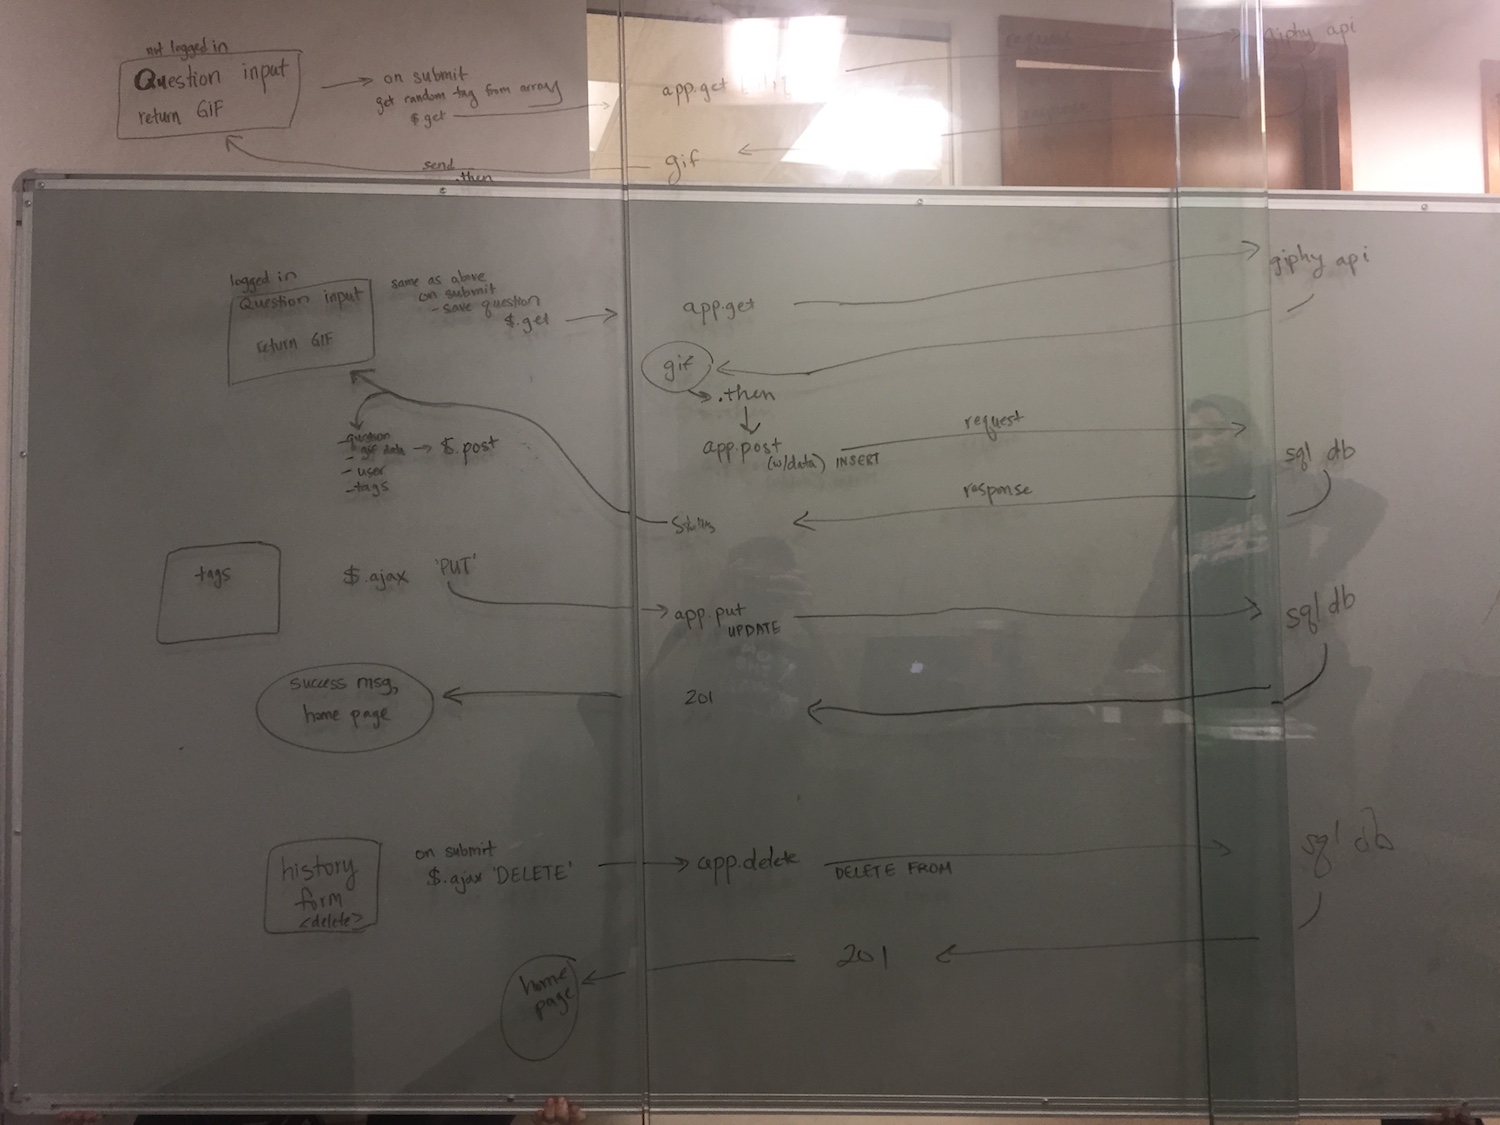 not logged in
Question input
return GIF
on submit
get random tag from array
$get
app.get
giphy api
request
send
.then
gif
logged in
Question input
return GIF
same as above
on submit
- save question
$.get
app.get
giphy api
gif
.then
app.post
(w/data) INSERT
request
sql db
response
- question
- gif data
- user
- tags
$.post
tags
$.ajax 'PUT'
app.put
UPDATE
sql db
success msg,
home page
201
history
form
<delete>
on submit
$.ajax 'DELETE'
app.delete
DELETE FROM
sql db
201
home
page